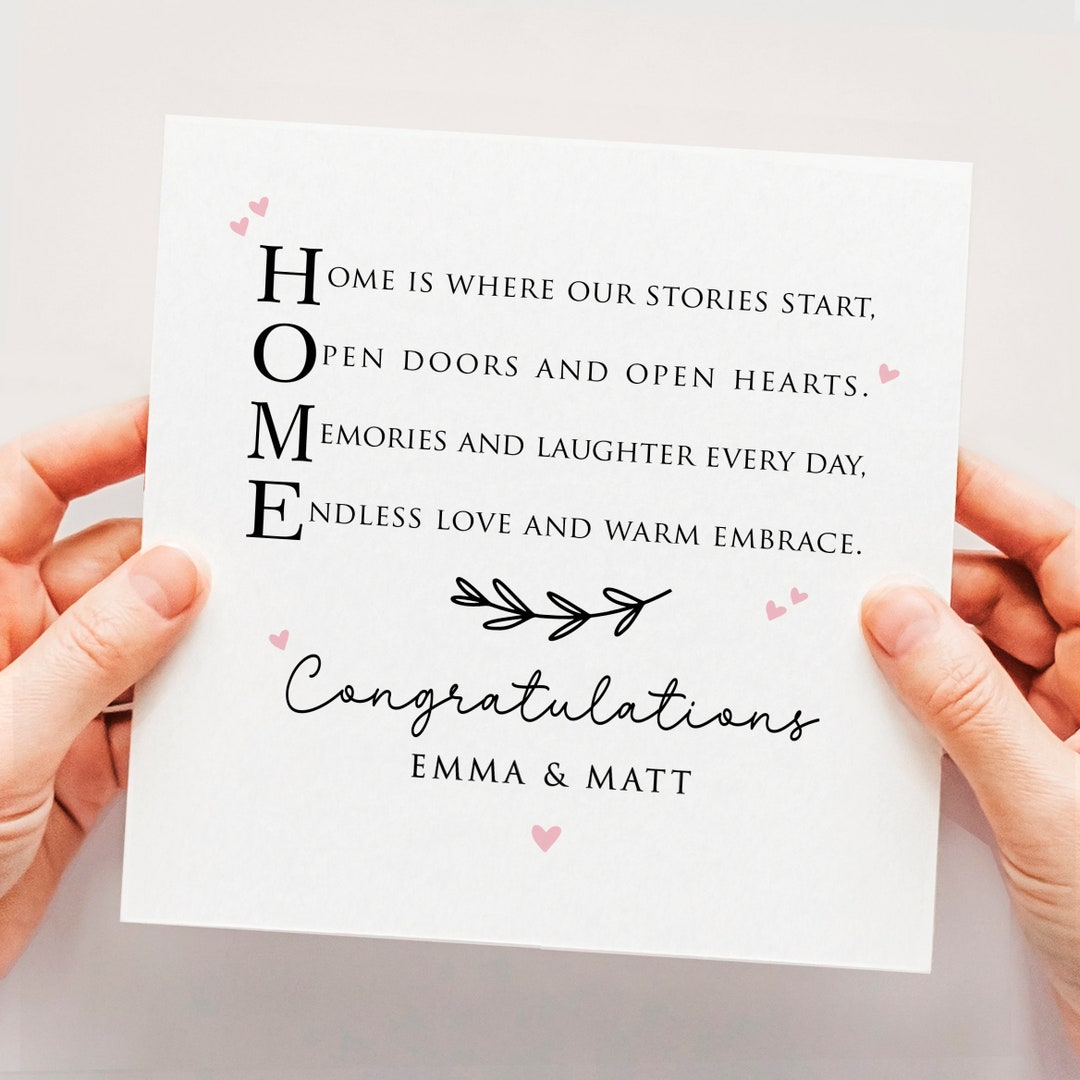 Home is where our stories start,
Open doors and open hearts.
Memories and laughter every day,
Endless love and warm embrace.
Congratulations
EMMA & MATT